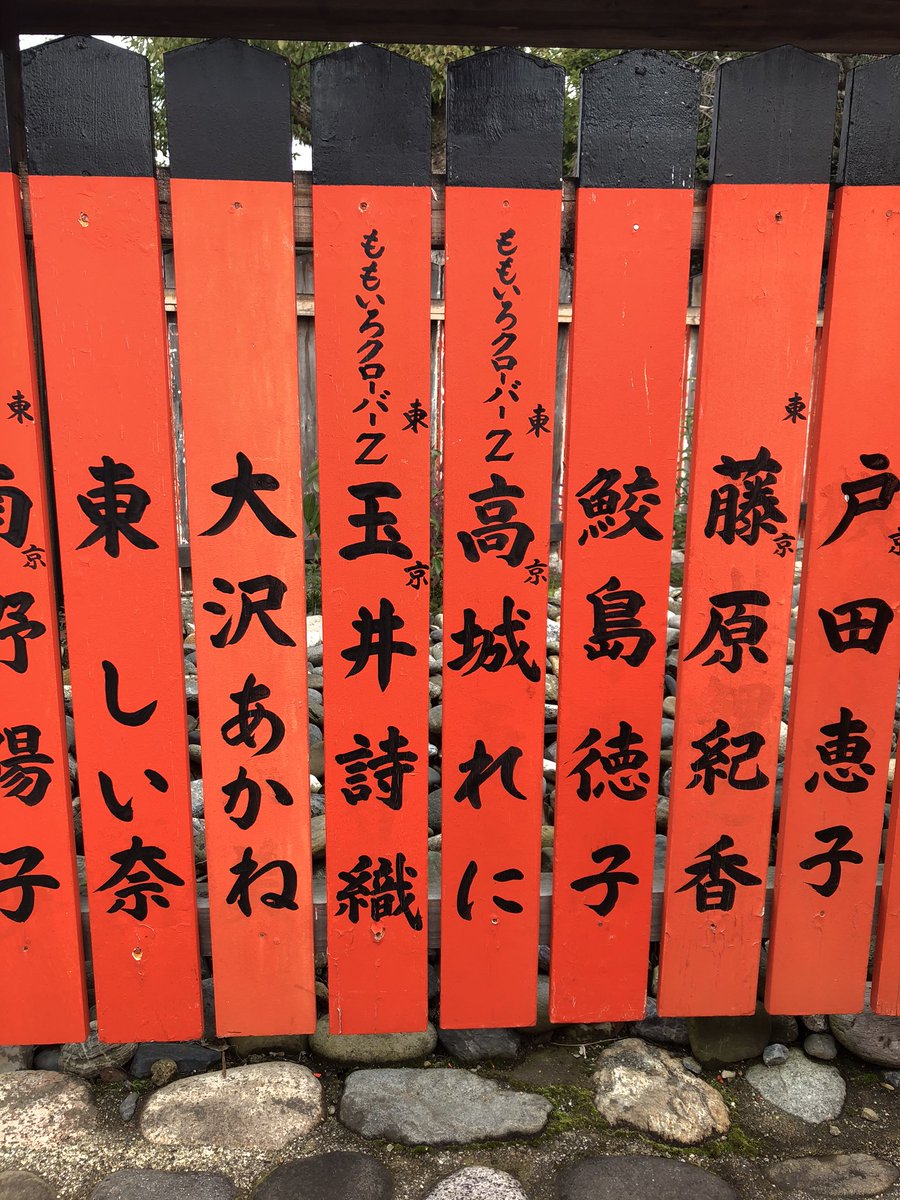 京
戸田恵子
東京
藤原紀香
鮫島徳子
東京
ももいろクローバーZ
高城れに
東京
ももいろクローバーZ
玉井詩織
大沢あかね
東しい奈
東京
南野陽子